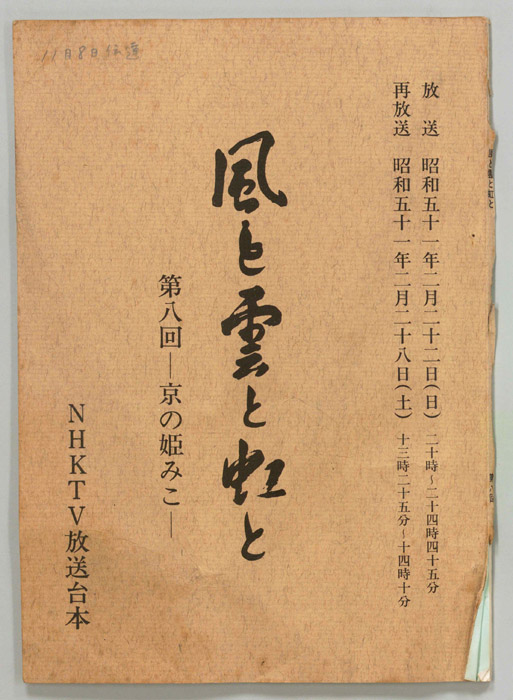 放送 昭和五十一年二月二十二日(日) 二十時~二十四時四十五分
再放送 昭和五十一年二月二十八日(土) 十三時二十五分~十四時十分
風と雲と虹と
第八回―京の姫みこ―
NHKTV放送台本
11月8日
風と雲と虹と